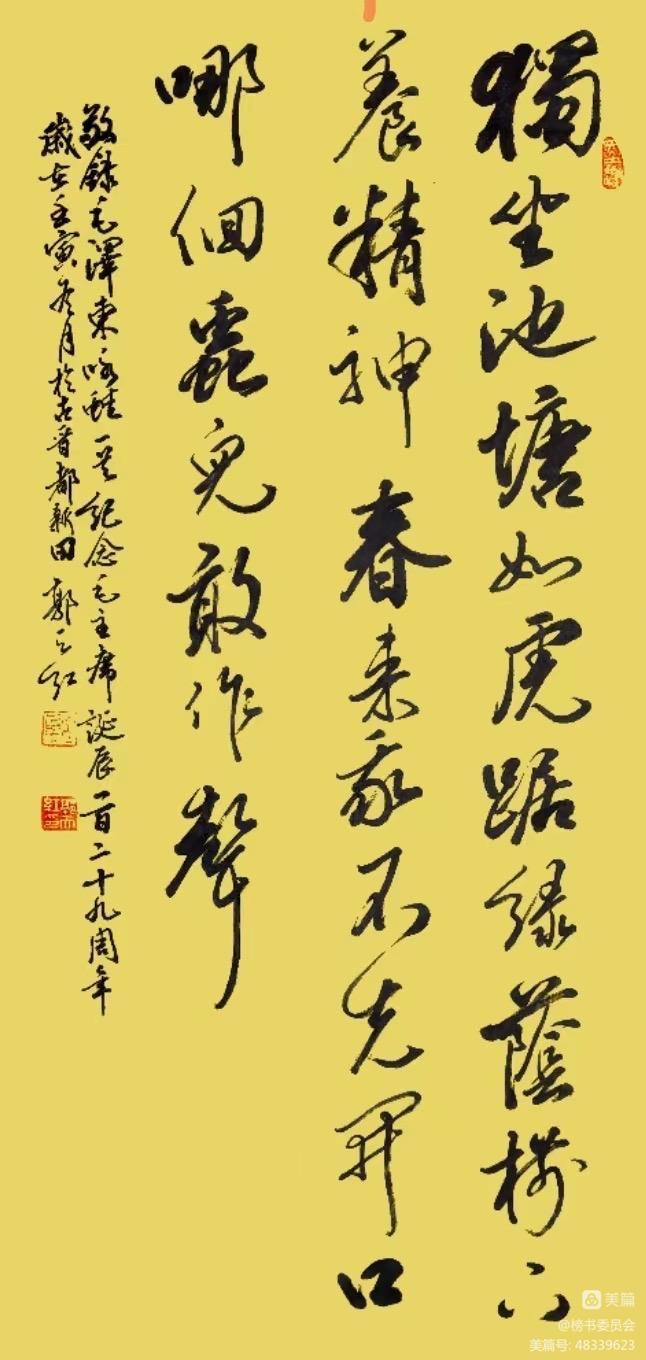 獨坐池塘如虎踞綠蔭樹下
養精神春来我不先開口
哪個蟲兒敢作聲
敬錄毛澤東咏蛙一首紀念毛主席誕辰一百二十九周年
歲在壬寅冬月於古晋都新田郭天红
美篇
@榜书委员会
美篇号: 48339623